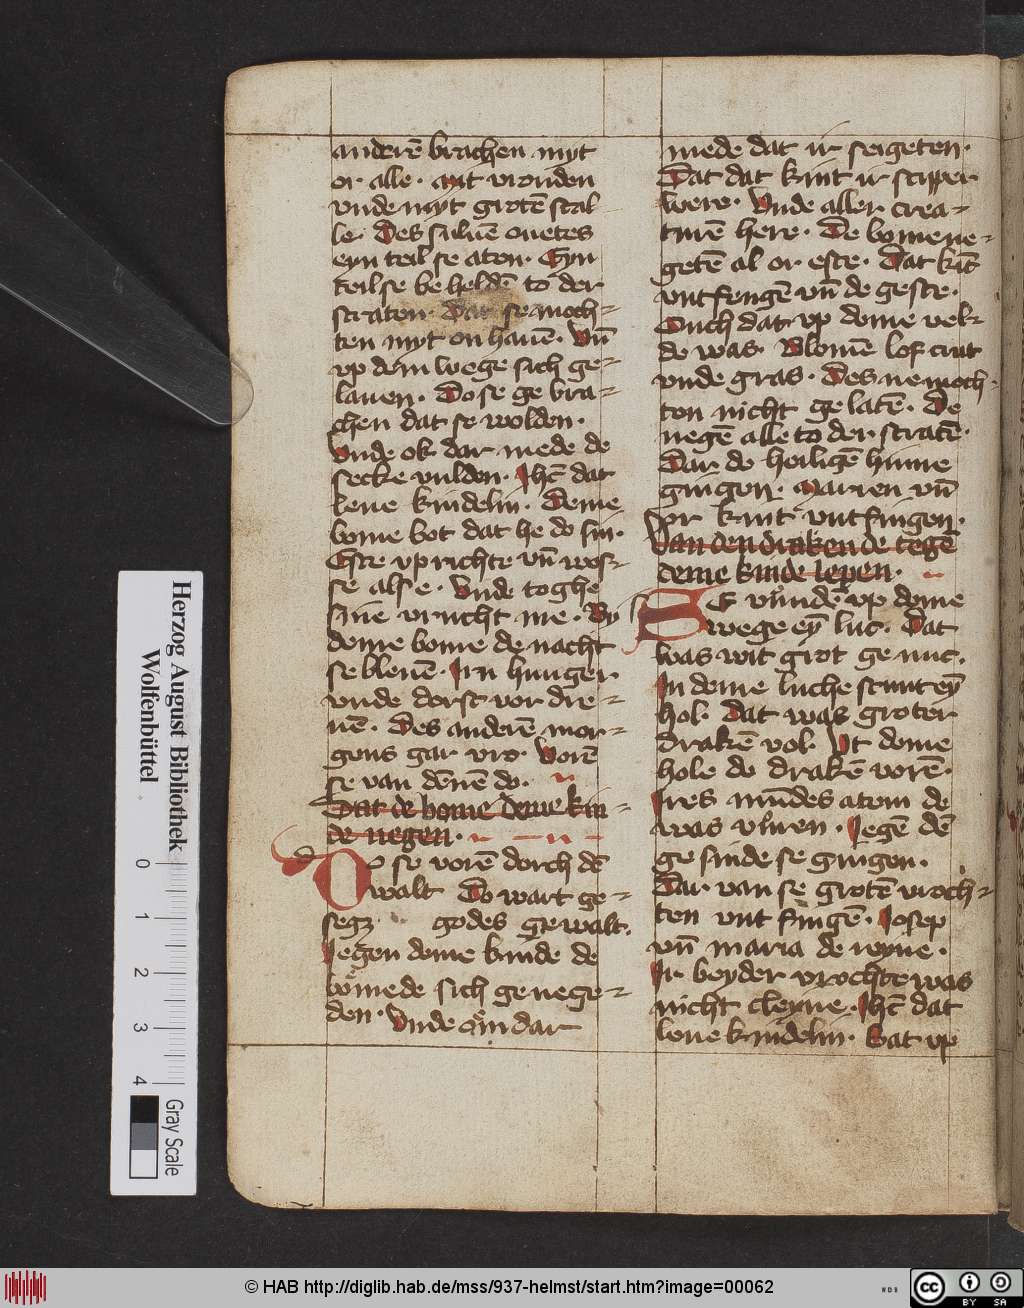 anderē brachen myt
or alle. myt vrouden
vnde myt grotē scal-
le. Des suluē ouetes
eyn teil se aten. Eyn
teil se beheldē to der
straten. Dat se moch-
ten myt on hauē. Vn̄
vp dem wege sich ge-
lauen. Do se ge bra-
chen dat se wolden.
Vnde ok dar mede de
secke vulden. Jhc̄ dat
leue kindelin. Deme
bome bot dat he do sin.
Este vp richte vn̄ wos-
se alse. Vnde toghe
sine vrucht me. By
deme bome de nacht
se bleuē. Jrn hunger
vnde dorst vor dre-
uē. Des anderē mor-
gens gar vro. Vorē
se van dēnē do.
Dat de bome deme kin-
de negen.
Do se vorē dorch dē
walt Do wart ge-
segz godes gewalt.
Jegen deme kinde de
bōme de sich genege-
den. Vnde dar
mede dat ir seigeten.
Dat dat kint ir scipper
were. Vnde aller crea-
turē here. De bome ne-
getē al or este. Dat kīt
vntfengē vn̄ de geste.
Ouch dat vp deme vel-
de was. Blomē lof crut
vnde gras. Des ne moch-
ten nicht ge latē. De
negē alle to der stratē.
Dar de heiligē hinne
gingen. Marien vn̄
or kint vntfingen.
Van den draken de tegē
deme kinde lepen.
Se vundē vp deme
wege eȳ luc. Dat
was wit grot ge nuc.
In deme luche stunt eȳ
hol. Dat was groter
drakē vol. Vt deme
hole do drakē vorē.
Jres mūdes atem de
was vluren. Jegē dē
ge sinde se gingen.
Dar van se grotē vroch-
ten vnt fingē. Josep
vn̄ maria de reyne.
Jr beyder vrochte was
nicht cleyne. Jhc̄ dat
leue kindelin. Bat vp
Herzog August Bibliothek
Wolfenbüttel
0 1 2 3 4
Gray Scale
© HAB http://diglib.hab.de/mss/937-helmst/start.htm?image=00062
WDB
cc BY SA